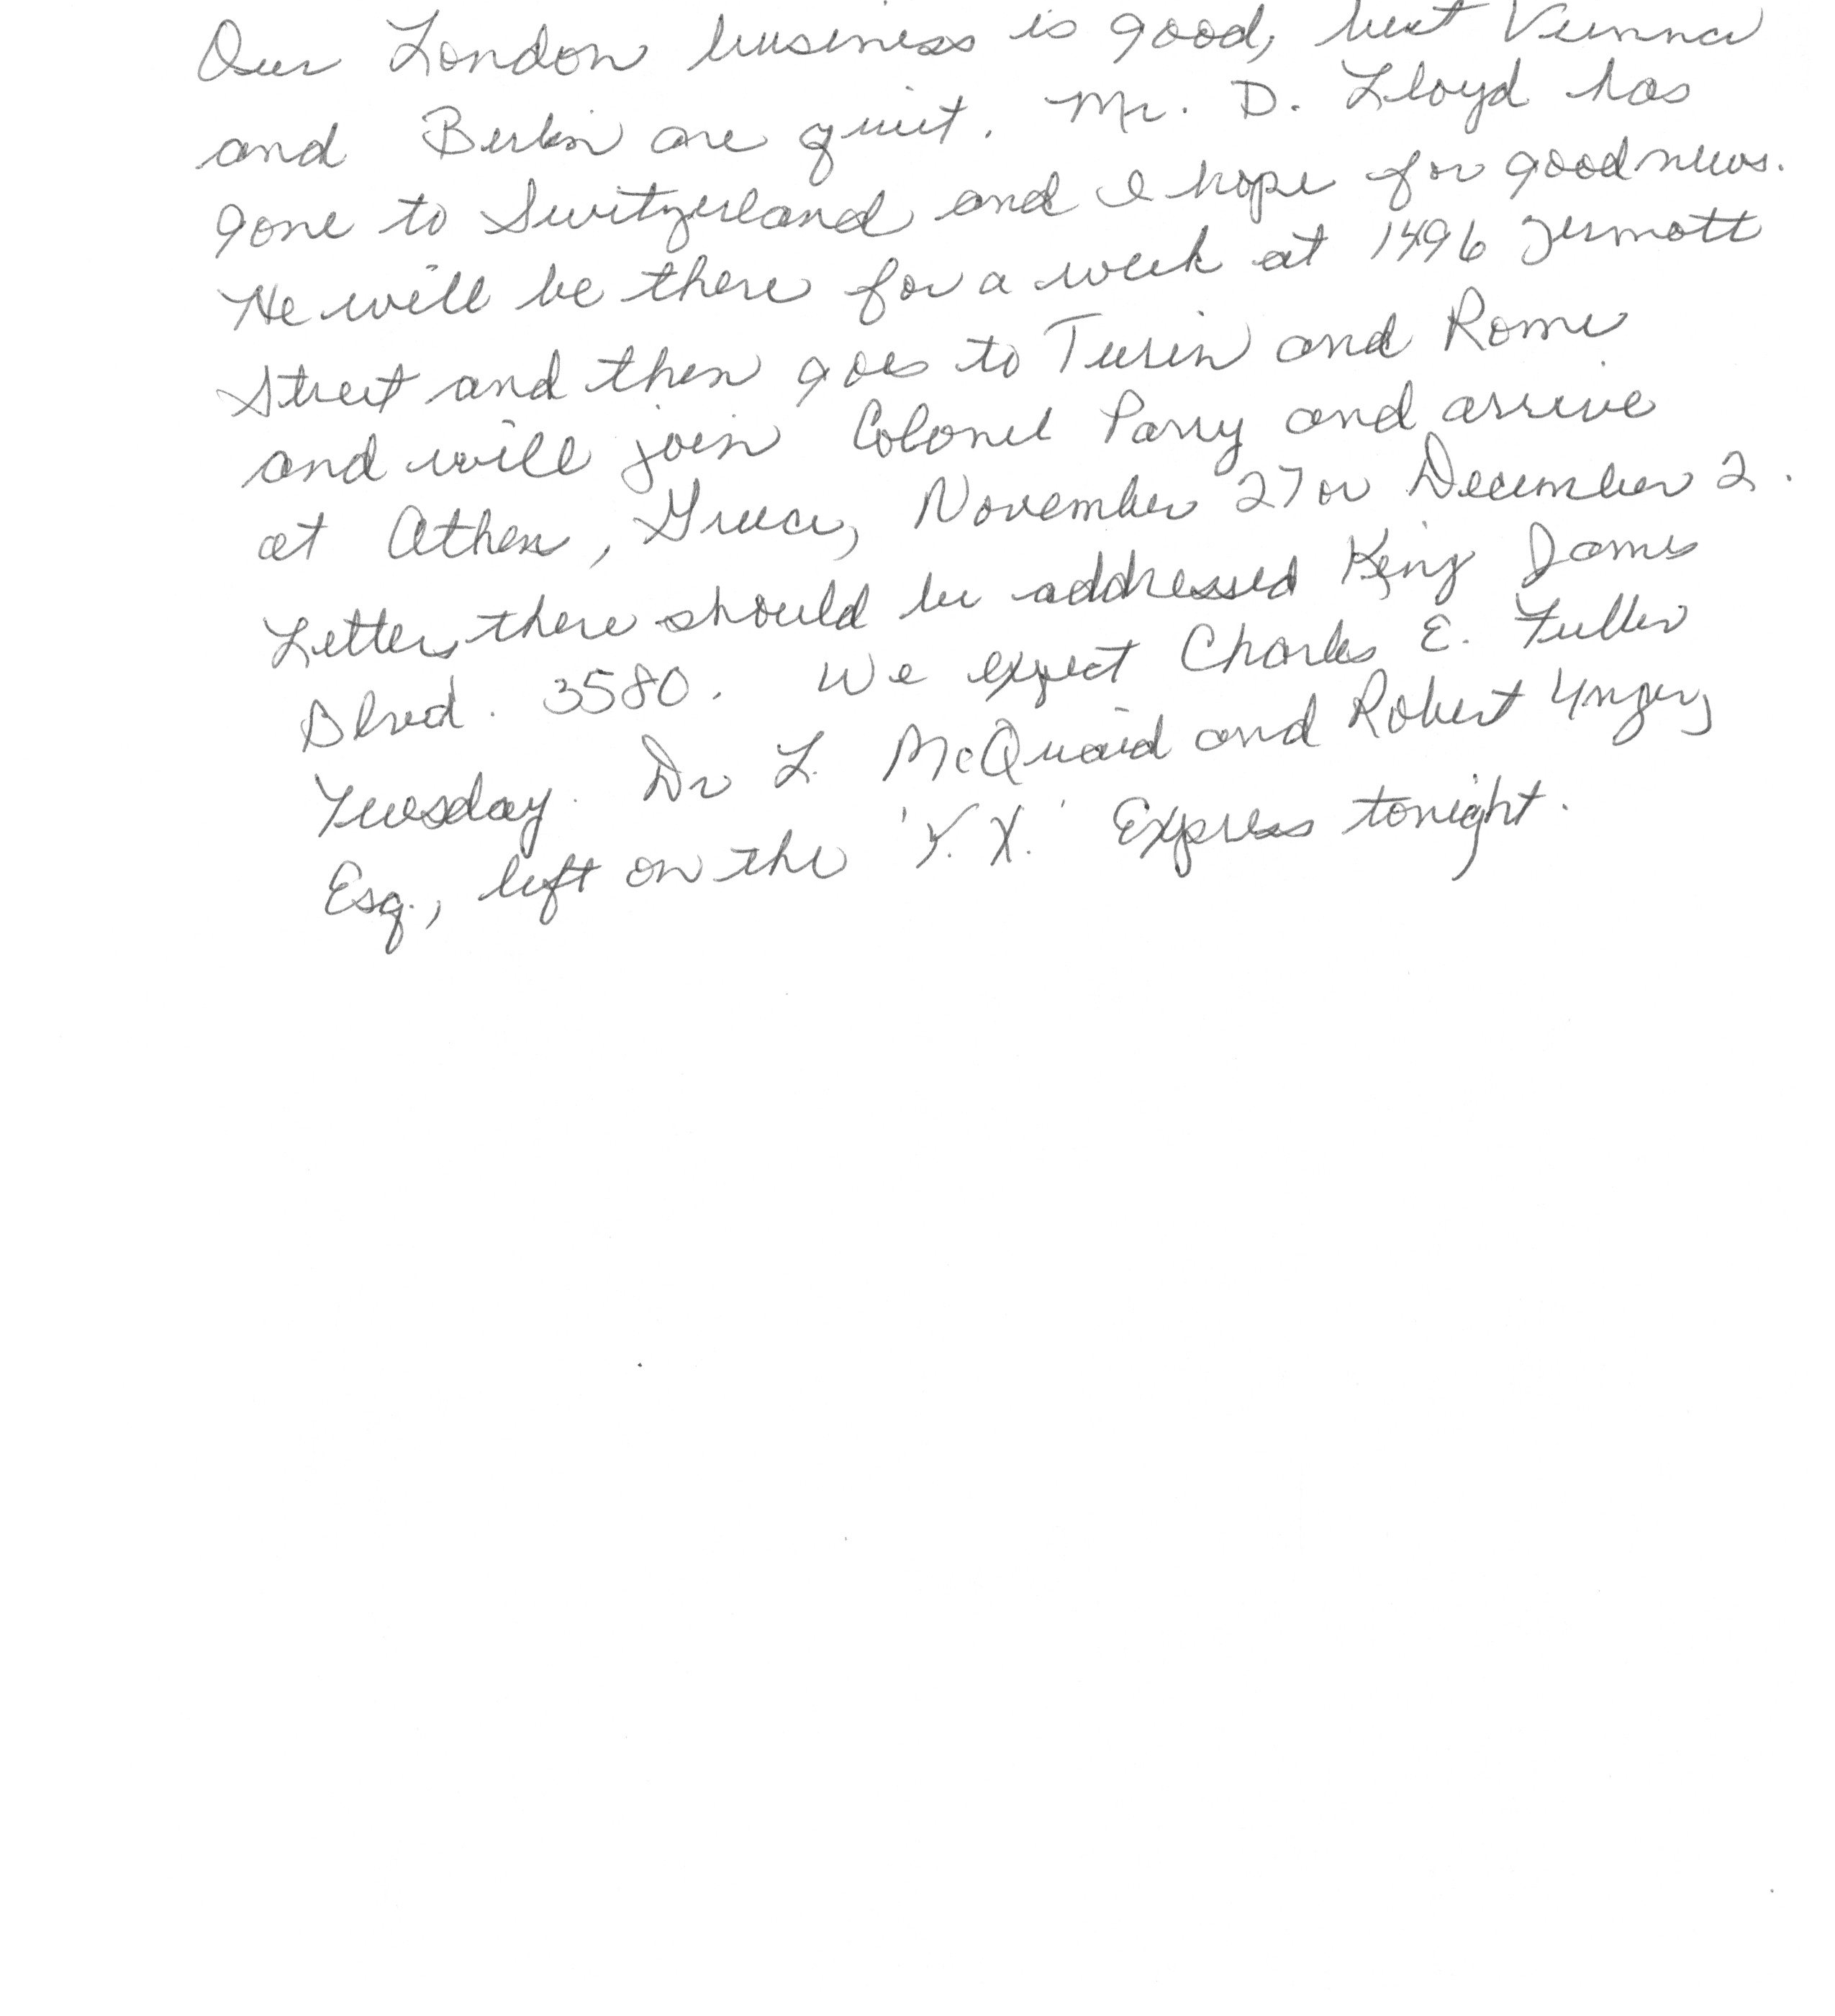 Our London business is good, but Vienna
and Berlin are quiet. Mr. D. Lloyd has
gone to Switzerland and I hope for good news.
He will be there for a week at 1496 Zermott
Street and then goes to Turin and Rome
and will join Colonel Parry and arrive
at Athens, Greece, November 27 or December 2.
Letters there should be addressed King James
Blvd. 3580. We expect Charles E. Fuller
Tuesday. Dr L. McQuaid and Robert Unger,
Esq., left on the 'Y.X.' Express tonight.